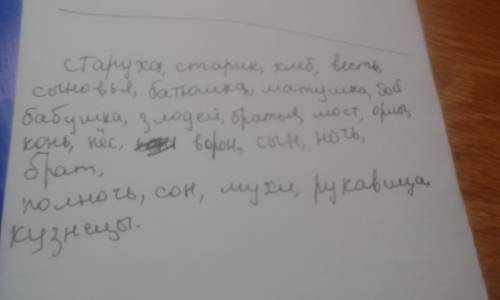 старуха, старик, хлеб, весть,
сыновья, батюшка, матушка, боб
бабушка, злодей, братья, мост, орлы,
конь, пёс, ворон, сын, ночь,
брат,
полночь, сон, мухи, рукавица,
кузнецы.